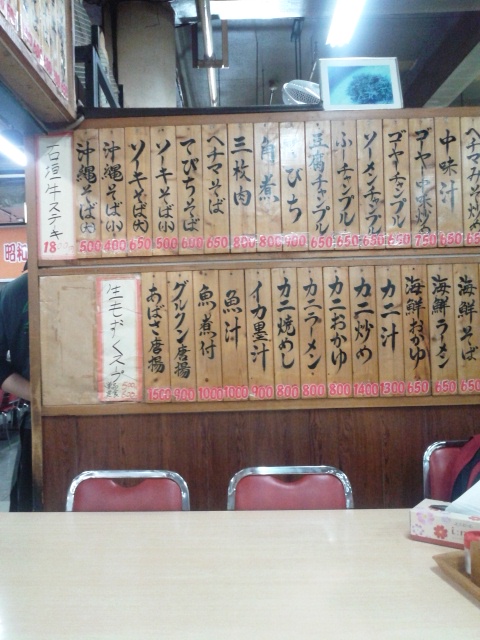 石垣牛ステーキ
沖縄そば(大) 500
沖縄そば(小) 400
ソーキそば(大) 600
ソーキそば(小) 500
てびちそば 600
ヘチマそば 650
三枚肉 800
角煮 800
てびち 900
豆腐チャンプル 650
ふーチャンプル 650
ソーメンチャンプル 650
ゴーヤーチャンプル 650
ゴーヤー中味炒め 750
中味汁 650
ヘチマみそ炒め 650
生もずく天ぷら
あばさ唐揚 1500
グルクン唐揚 900
魚煮付 1000
魚汁 1000
イカ墨汁 900
カニ焼めし 800
カニラーメン 800
カニおかゆ 800
カニ炒め 1400
カニ汁 1300
海鮮おかゆ 650
海鮮ラーメン 650
海鮮そば 650
昭和